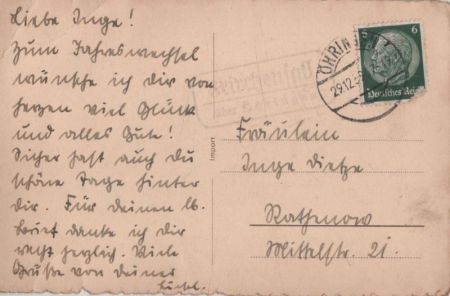 Liebe Inge!
Zum Jahreswechsel
wünsche ich dir von
Herzen viel Glück
und alles Gute!
Sicher hast auch du
schöne Tage hinter
dir. Für deinen lb.
Brief danke ich dir
recht herzlich. Viele
Grüße von deiner
Import
Kirchensall
über
ÖHRINGEN
29.12.
6 6
Deutsches Reich
Fräulein
Inge Dietze
Rathenow
Mittelstr. 21.